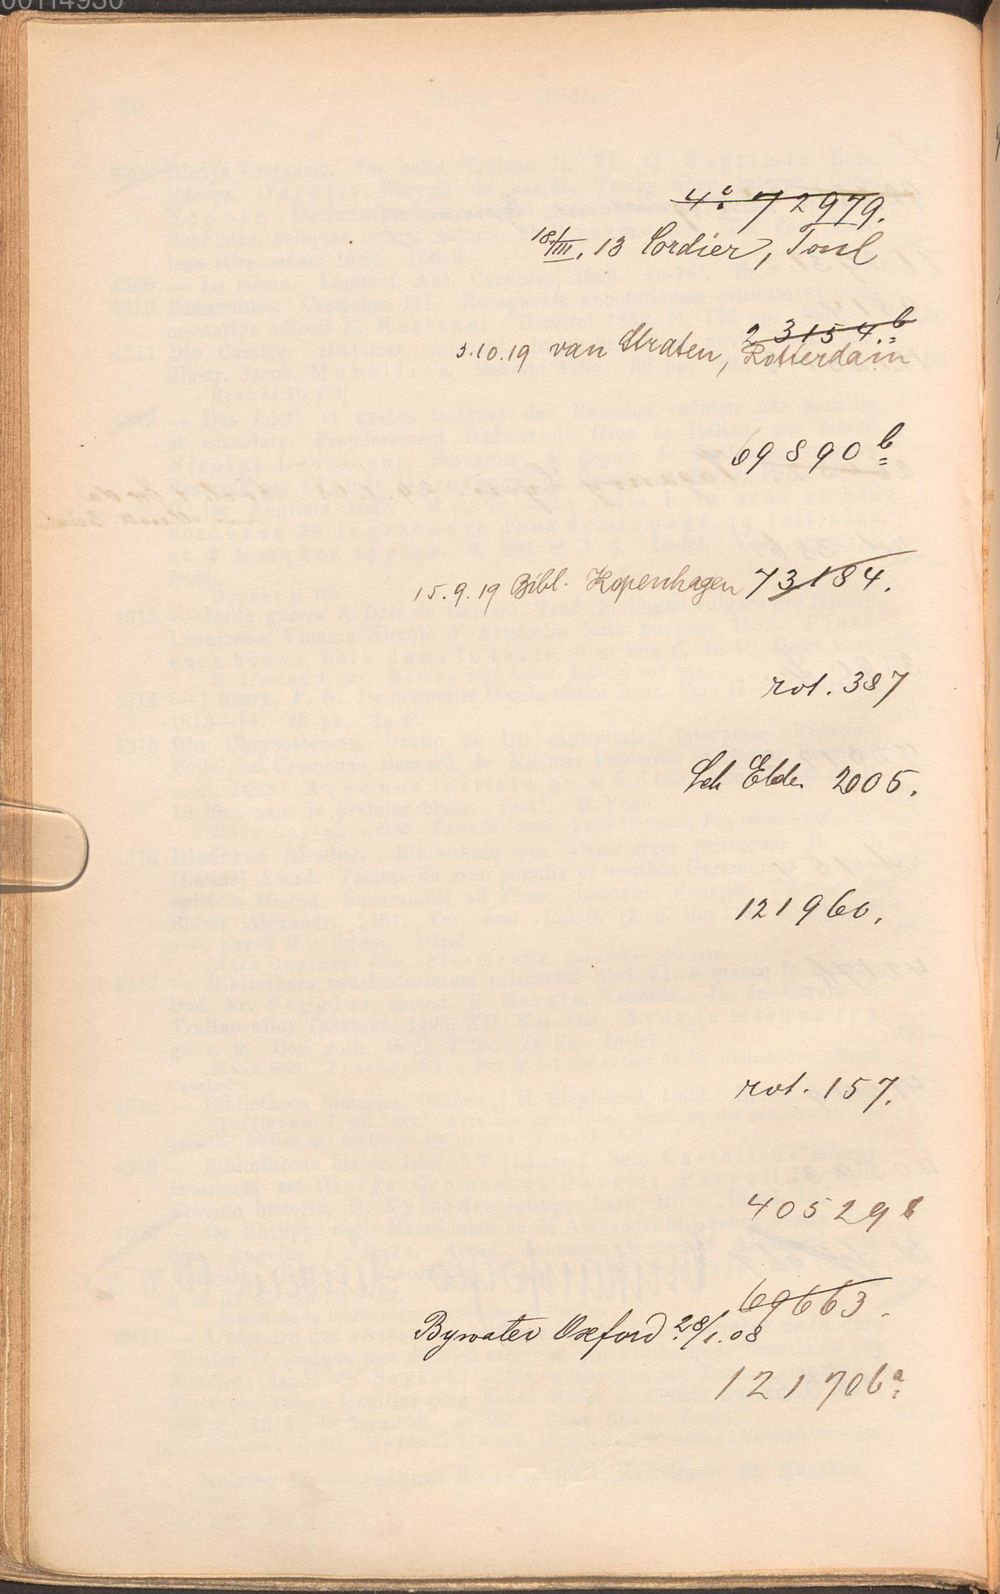 00114930
4° 72979.
18/III. 13 Cordier, Toul
23154.b
3.10.19 van Straten, Rotterdam
69890 b
15.9.19 Bibl. Kopenhagen 73184.
rot. 387
2005.
121960.
rot. 157.
40529
69663.
Bywater Oxford 28/1.08
121706a